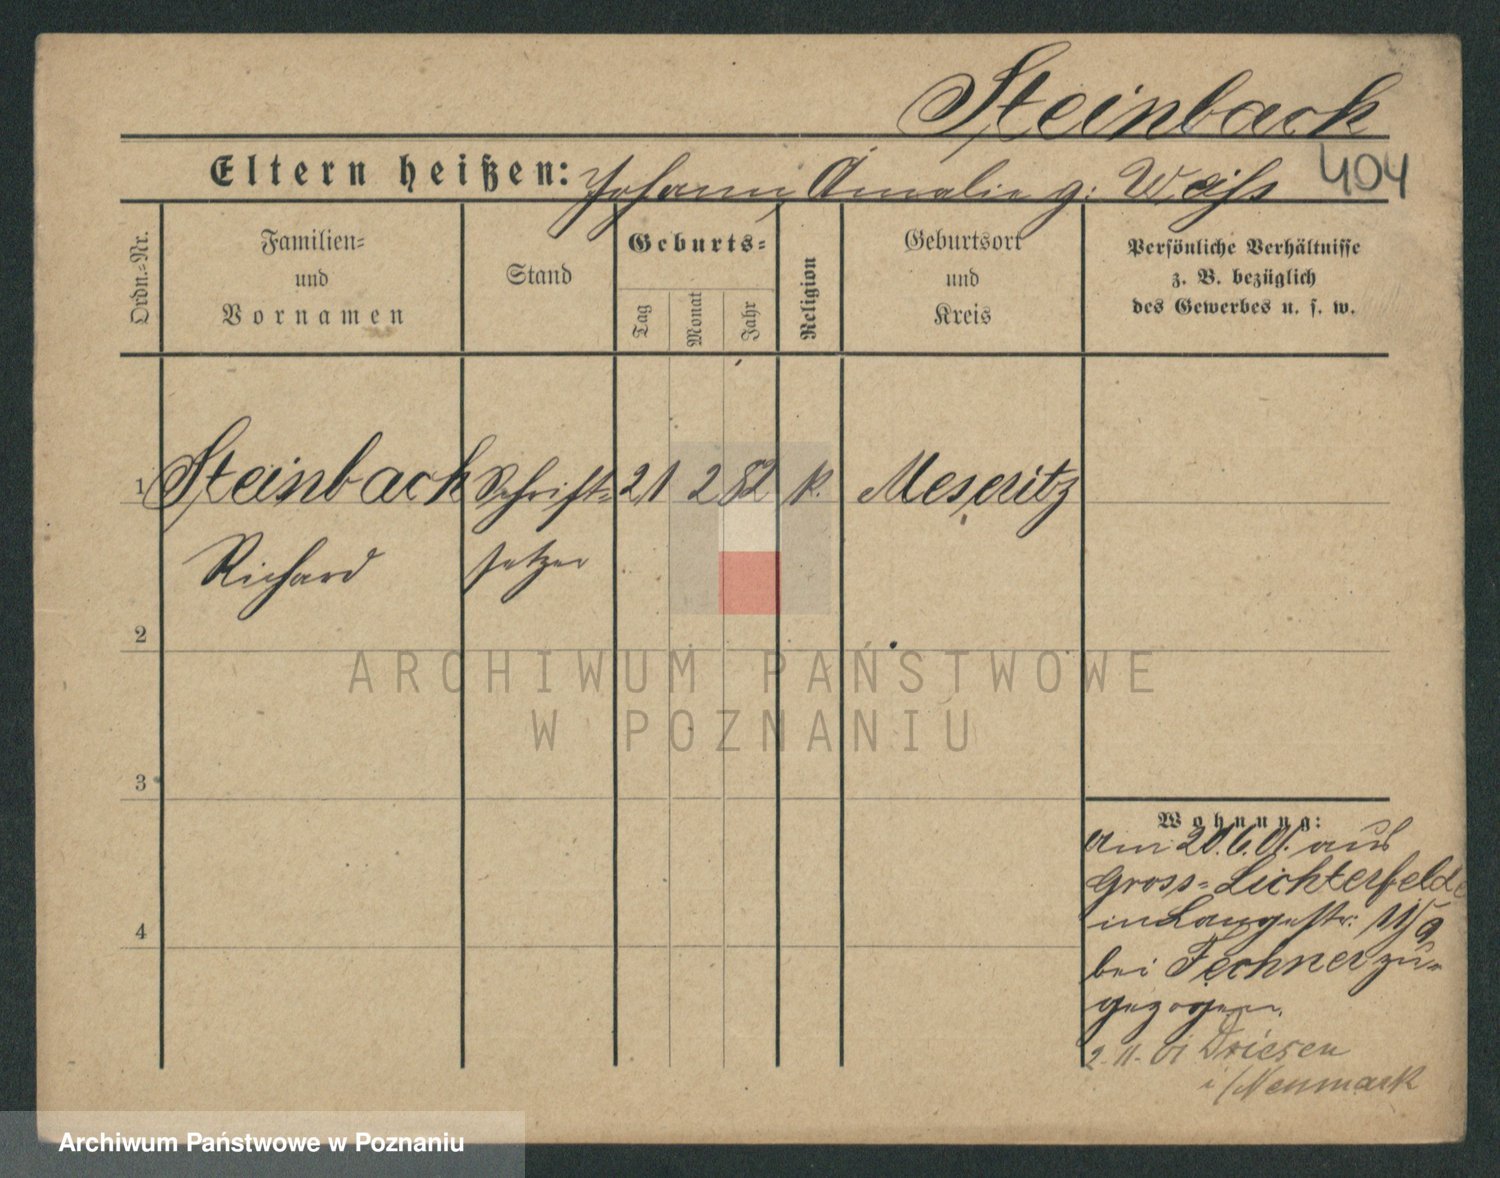 Steinback
Eltern heißen: Johann, Amalie g: Weiß 404
Ordn.=Nr.
Familien=
und
Vornamen
Stand
Geburts=
Tag
Monat
Jahr
Religion
Geburtsort
und
Kreis
Persönliche Verhältnisse
z. B. bezüglich
des Gewerbes u. s. w.
1 Steinback Schrift= 21 2 82 k. Meseritz
Richard setzer
2
ARCHIWUM PAŃSTWOWE
W POZNANIU
3
Wohnung:
Am 20.6.01. aus
Gross=Lichterfelde
in Langestr: 11/9
bei Fechner zu=
gezogen.
2.11.01 Driesen
i/Neumark
4
Archiwum Państwowe w Poznaniu